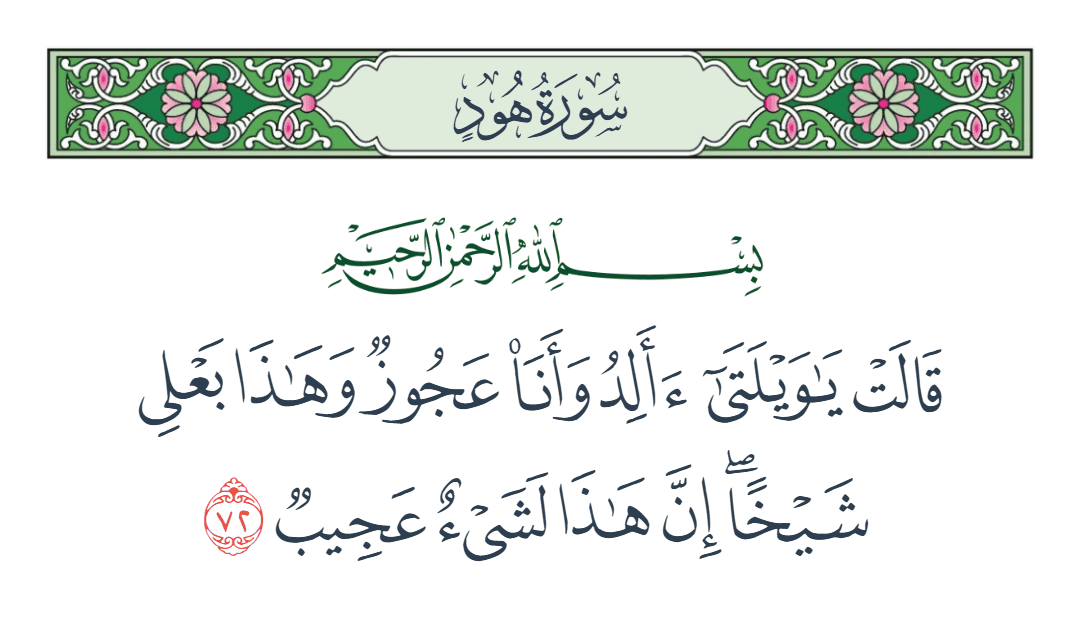 سُورَةُ هُودٍ
بِسْمِ ٱللَّهِ ٱلرَّحْمَٰنِ ٱلرَّحِيمِ
قَالَتْ يَٰوَيْلَتَىٰٓ ءَأَلِدُ وَأَنَا۠ عَجُوزٌ وَهَٰذَا بَعْلِى
شَيْخًا ۖ إِنَّ هَٰذَا لَشَىْءٌ عَجِيبٌ ٧٢